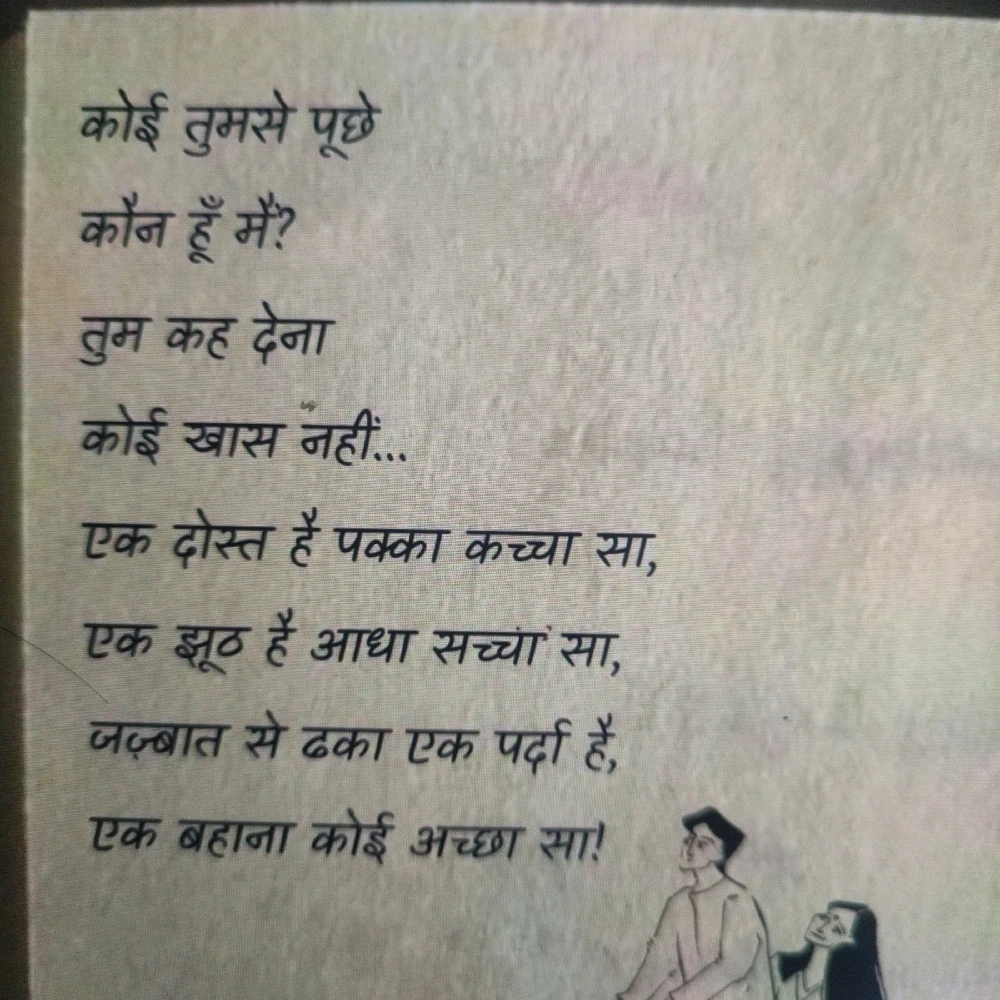 कोई तुमसे पूछे
कौन हूँ मैं?
तुम कह देना
कोई खास नहीं...
एक दोस्त है पक्का कच्चा सा,
एक झूठ है आधा सच्चा सा,
जज़्बात से ढका एक पर्दा है,
एक बहाना कोई अच्छा सा!